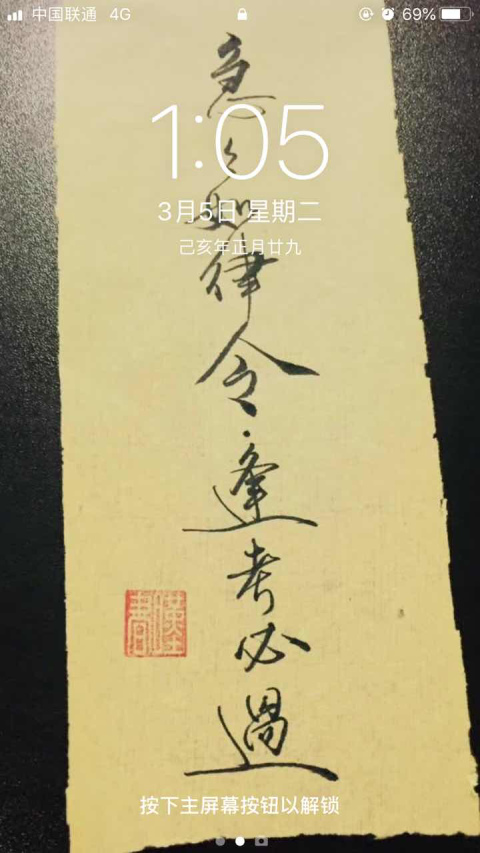 中国联通 4G 69%
1:05
3月5日 星期二
己亥年正月廿九
急々如律令·逢考必過
按下主屏幕按钮以解锁